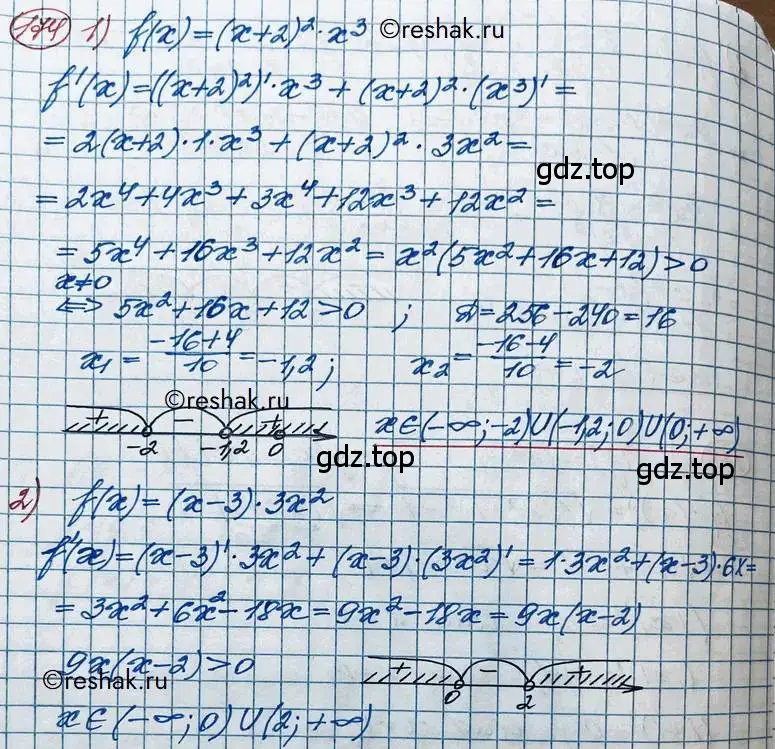 174 1) f(x) = (x+2)²·x³ ©reshak.ru
f'(x) = ((x+2)²)'·x³ + (x+2)²·(x³)' =
= 2(x+2)·1·x³ + (x+2)²·3x² =
gdz.top
= 2x⁴ + 4x³ + 3x⁴ + 12x³ + 12x² =
= 5x⁴ + 16x³ + 12x² = x²(5x² + 16x + 12) > 0
x≠0
⟺ 5x² + 16x + 12 > 0 ; D = 256 − 240 = 16
x₁ = (−16+4)/10 = −1,2 ; x₂ = (−16−4)/10 = −2
©reshak.ru
+ − +
−2 −1,2 0
x∈(−∞; −2)U(−1,2; 0)U(0; +∞)
gdz.top
2) f(x) = (x−3)·3x²
f'(x) = (x−3)'·3x² + (x−3)·(3x²)' = 1·3x² + (x−3)·6x =
= 3x² + 6x² − 18x = 9x² − 18x = 9x(x−2)
9x(x−2) > 0
©reshak.ru
+ − +
0 2
x∈(−∞; 0)U(2; +∞)
gdz.top